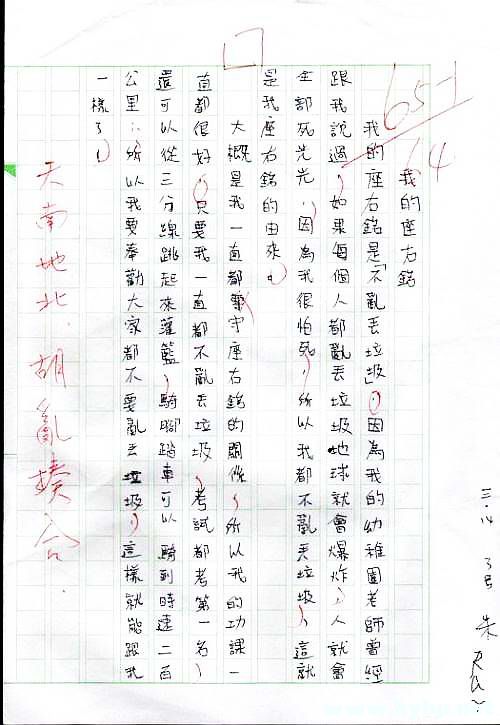 我的座右銘
我的座右銘是「不亂丟垃圾」，因為我的幼稚園老師曾經
跟我說過，如果每個人都亂丟垃圾地球就會爆炸，人就會
全部死光光，因為我很怕死，所以我都不亂丟垃圾，這就
是我座右銘的由來。
大概是我一直都筆守座右銘的關係，所以我的功課一
直都很好，只要我一直都不亂丟垃圾，考試都考第一名，
還可以從三分線跳起來灌籃，騎腳踏車可以騎到時速二百
公里，所以我要奉勸大家都不要亂丟垃圾，這樣就能跟我
一樣了！
天南地北．胡亂揍合．
65-1
14
三.14
3号
朱